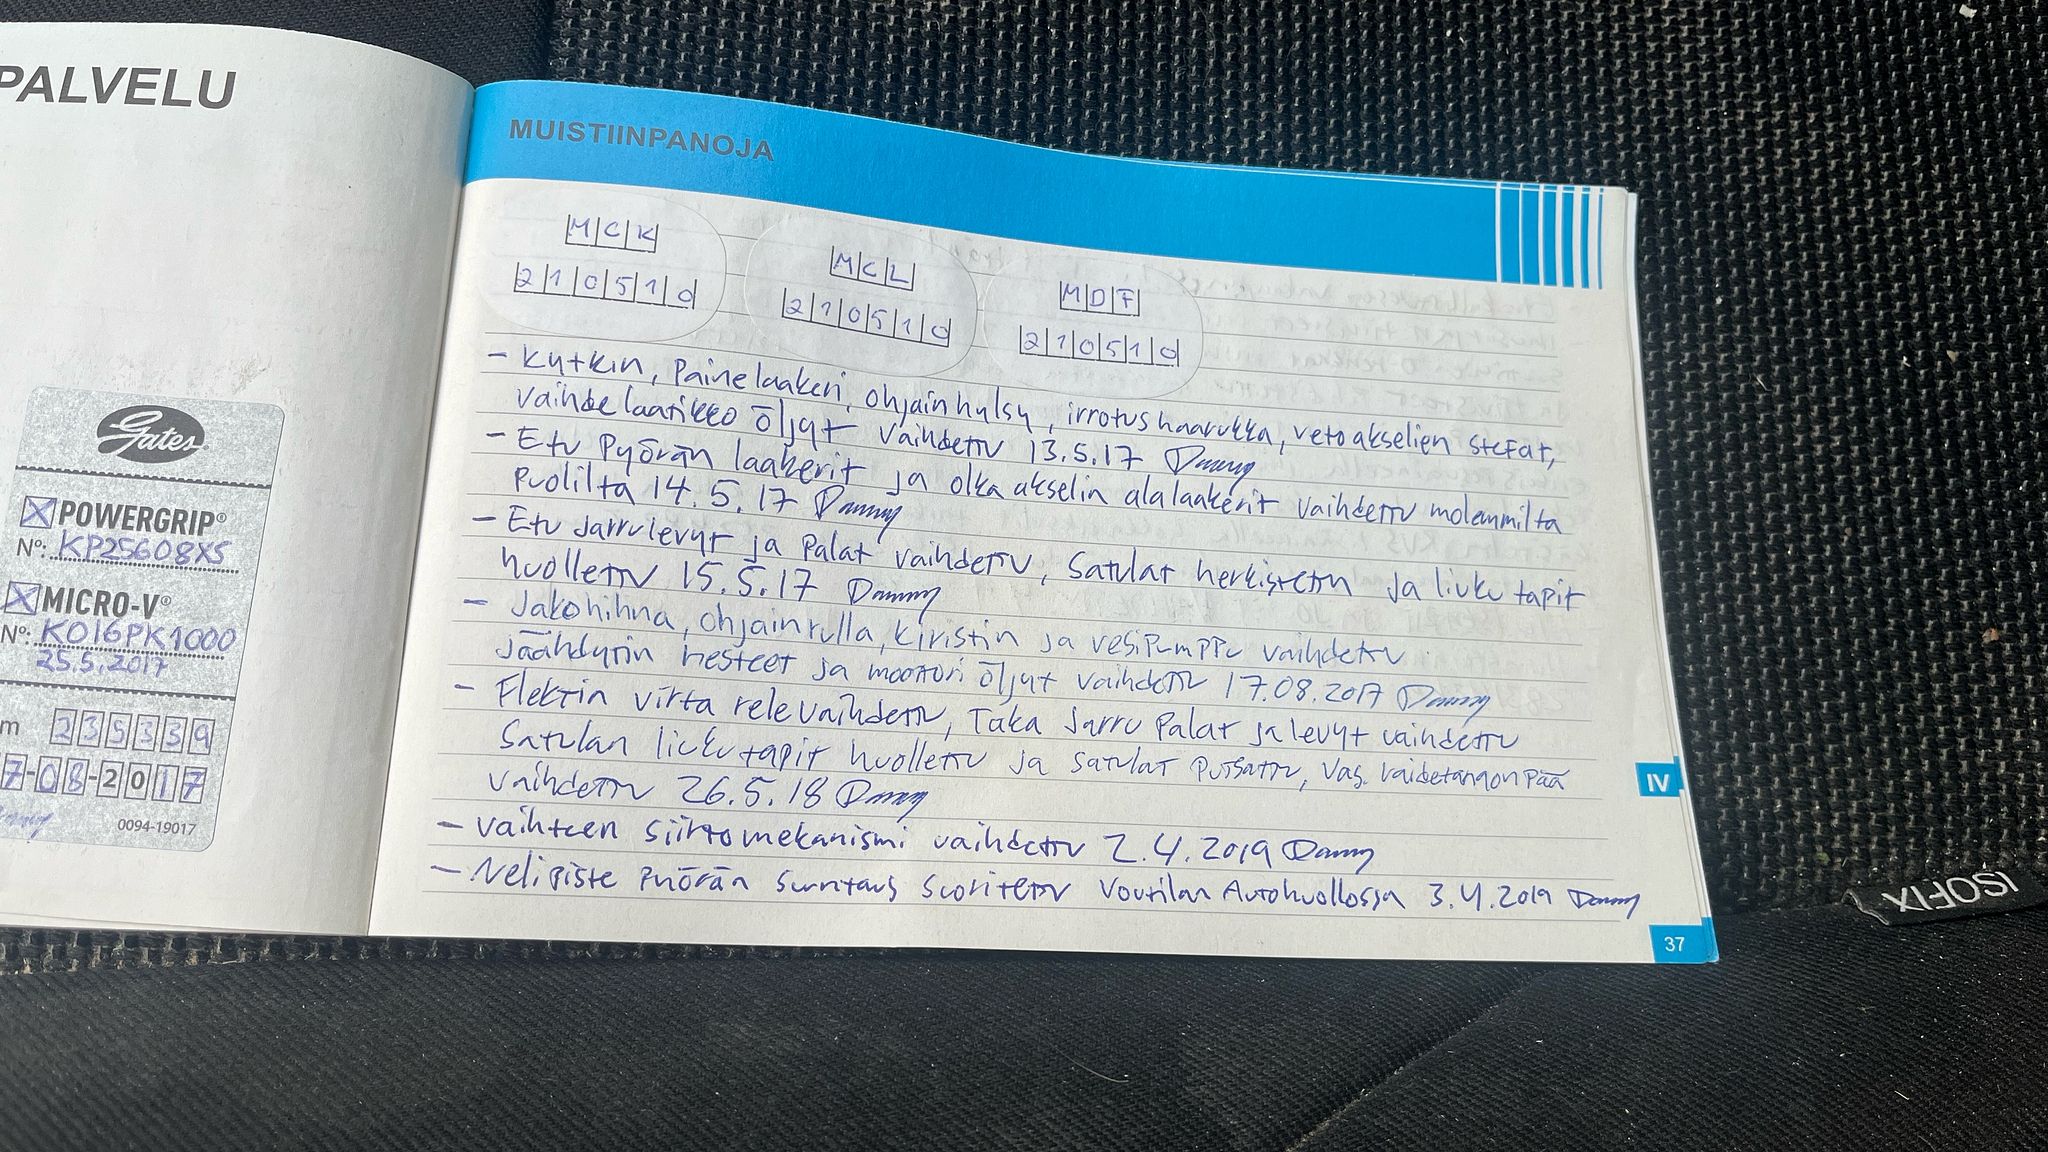 PALVELU
Gates
POWERGRIP®
Nº: KP25608XS
MICRO-V®
Nº: K016PK1000
25.5.2017
m 235339
7-08-2017
0094-19017
MUISTIINPANOJA
MCK
210510
MCL
210510
MDF
210510
- Kytkin, Painelaakeri, ohjainhylsy, irrotushaarukka, vetoakselien stefat,
vaihdelaatikko öljyt vaihdettu 13.5.17 Danny
- Etu Pyörän laakerit ja olka akselin alalaakerit vaihdettu molemmilta
Puolilta 14.5.17 Danny
- Etu Jarrulevyt ja Palat vaihdettu, Satulat herkistetty ja liuku tapit
huollettu 15.5.17 Danny
- Jakohihna, ohjainrulla, kiristin ja vesipumppu vaihdettu
Jäähdytin nesteet ja moottori öljyt vaihdettu 17.08.2017 Danny
- Flektin virta rele vaihdettu, Taka Jarru Palat ja levyt vaihdettu
Satulan liuku tapit huollettu ja satulat putsattu, Vas. raidetangon Pää
vaihdettu 26.5.18 Danny
- Vaihteen siirtomekanismi vaihdettu 2.4.2019 Danny
- Nelipiste pyörän suuntaus suoritettu Voutilan Autohuollossa 3.4.2019 Danny
IV
37
ISOFIX